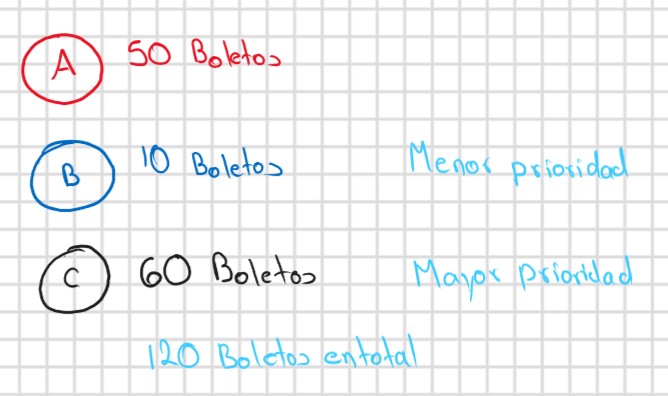 A 50 Boletos
B 10 Boletos Menor prioridad
C 60 Boletos Mayor prioridad
120 Boletos en total